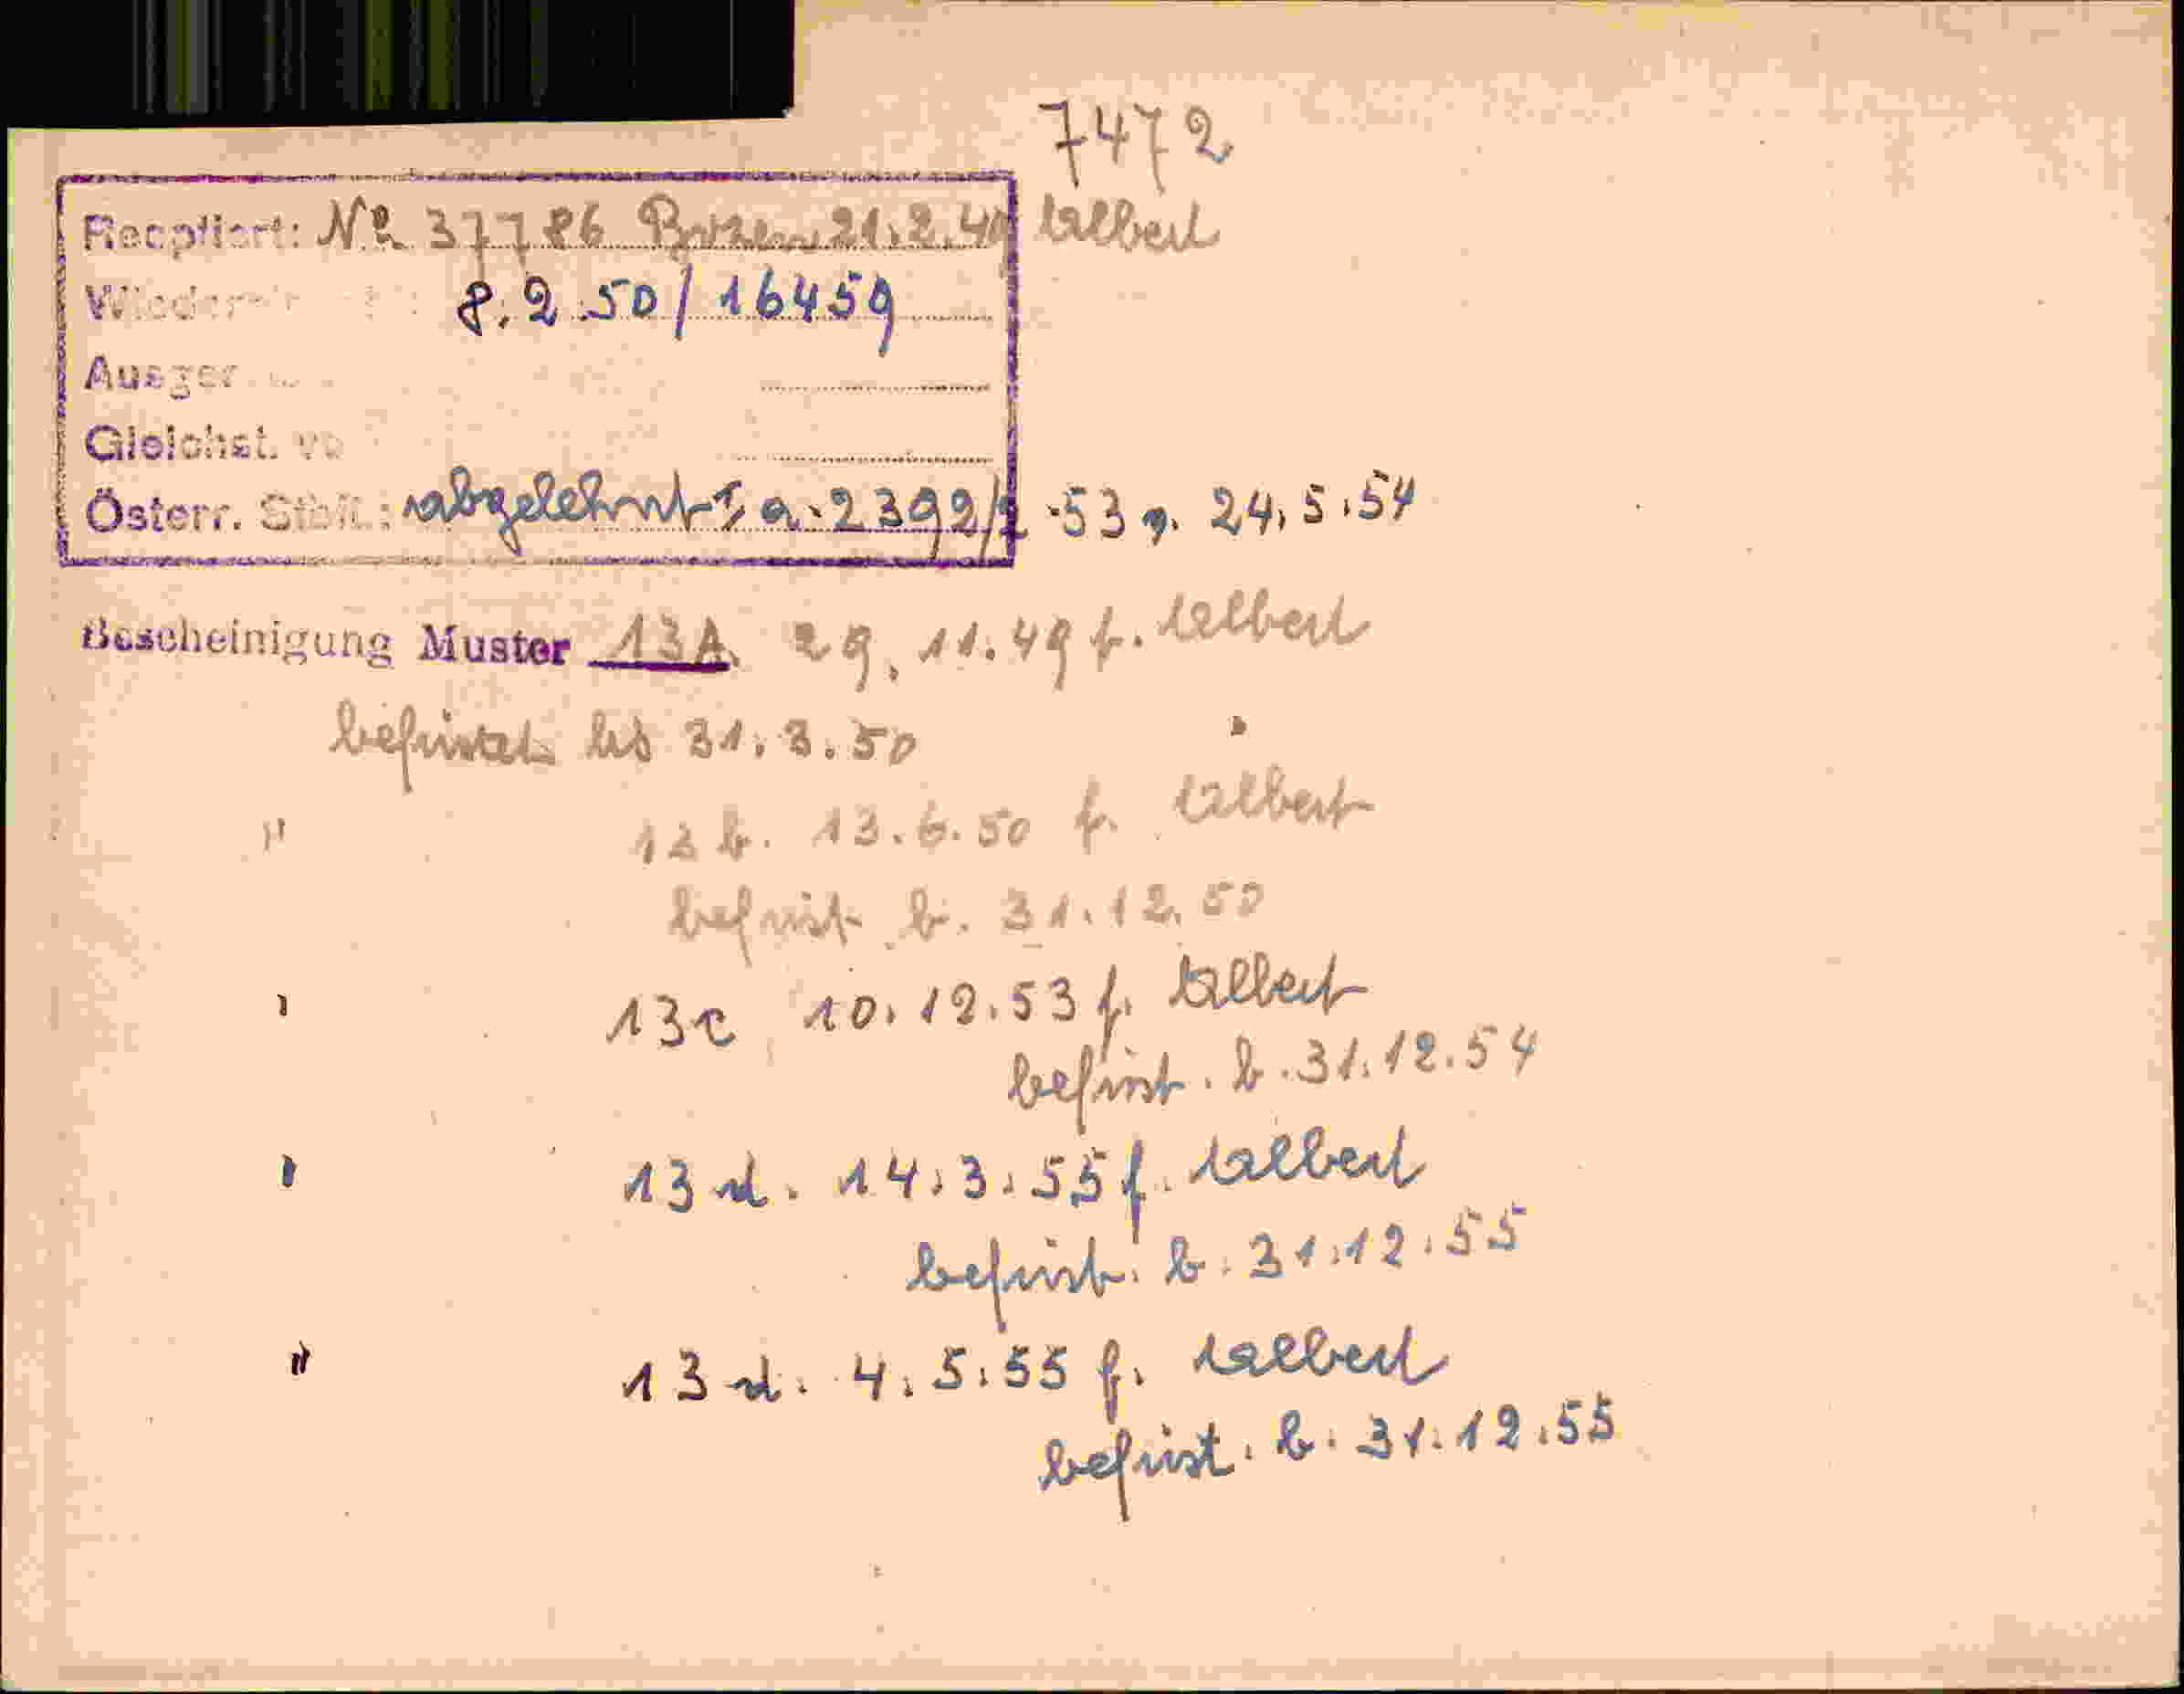 7472
Reoptiert: No 37786 Bozen 21.2.49 Albert
8.2.50/16459
Ausger
Gleichst. vo
Österr. Stbft.: abgelehnt Ia-2392/2-53 v. 24.5.54
Bescheinigung Muster 13A 29.11.49 f. Albert
befristet bis 31.3.50
" 13 b. 13.6.50 f. Albert
befrist. b. 31.12.50
" 13c 10.12.53 f. Albert
befrist. b. 31.12.54
" 13 d. 14.3.55 f. Albert
befrist. b. 31.12.55
" 13 d. 4.5.55 f. Albert
befrist. b. 31.12.55